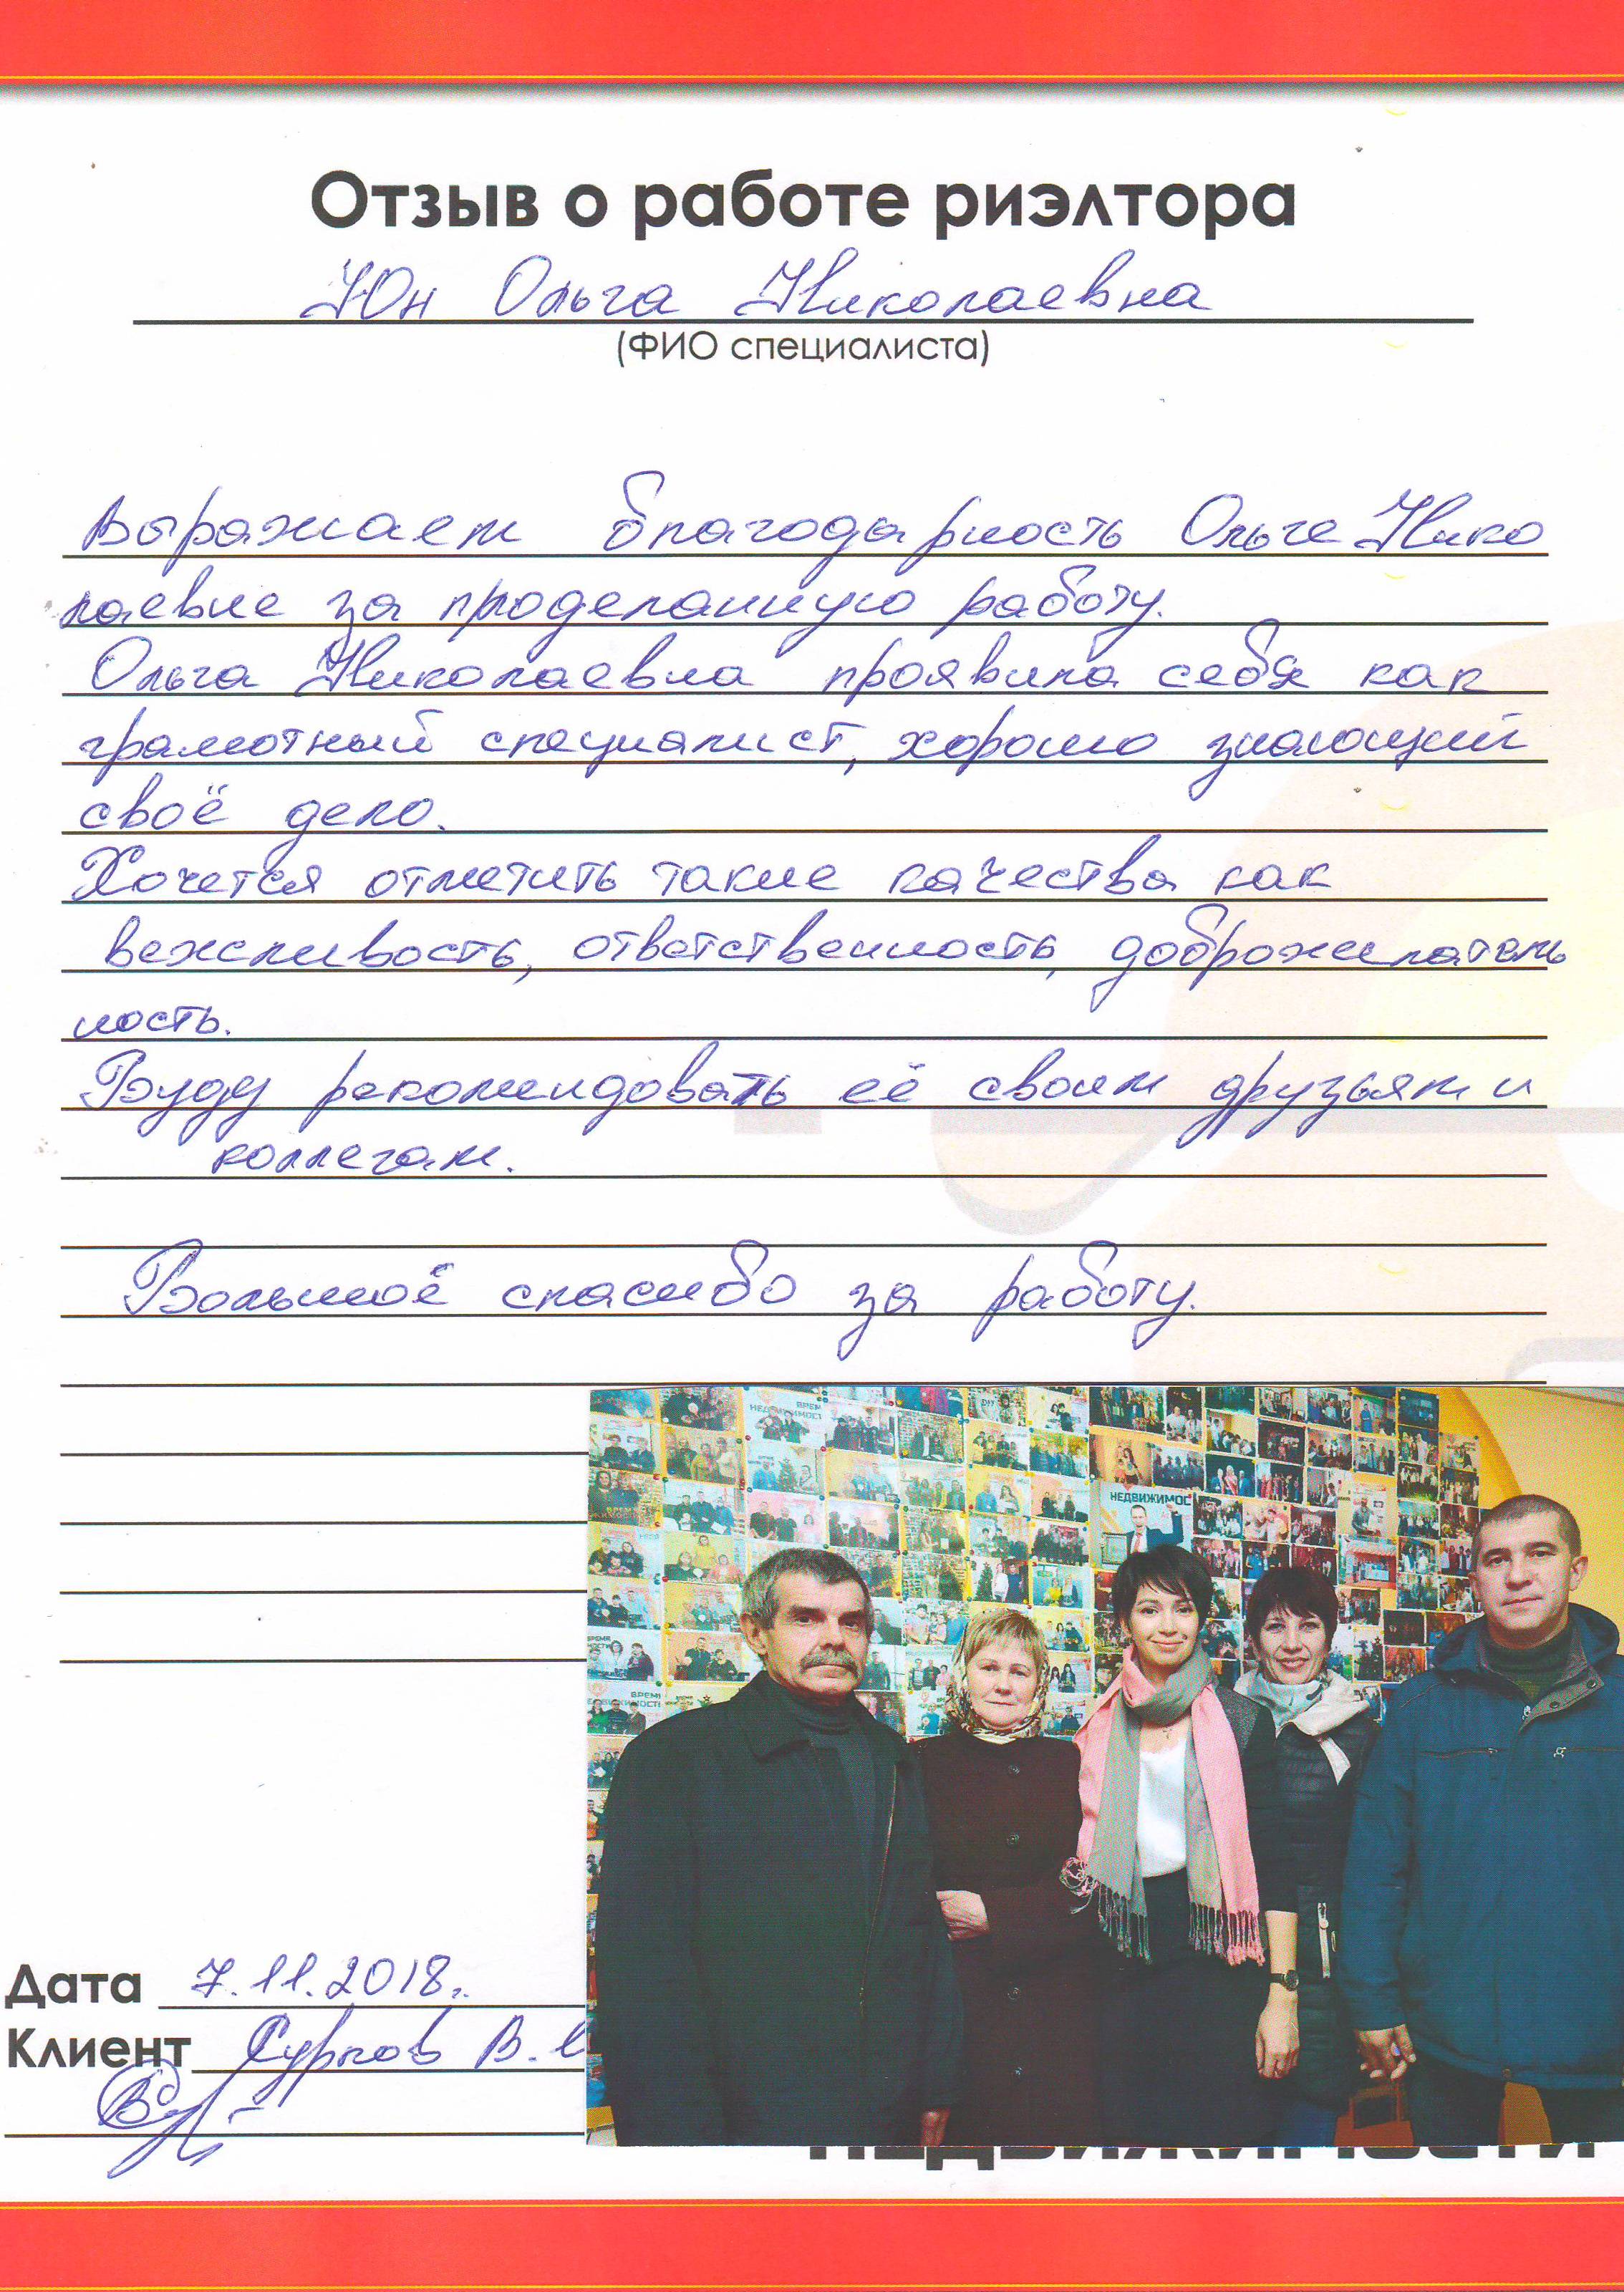 Отзыв о работе риэлтора
Юн Ольга Николаевна
(ФИО специалиста)
Выражаем благодарность Ольге Нико
лаевне за проделанную работу.
Ольга Николаевна проявила себя как
грамотный специалист, хорошо знающий
своё дело.
Хочется отметить такие качества как
вежливость, ответственность, доброжелатель
ность.
Буду рекомендовать её своим друзьям и
коллегам.
Большоё спасибо за работу.
НЕДВИЖИМОС
Дата 7.11.2018г.
Клиент В.
НЕДВИЖИМОСТИ